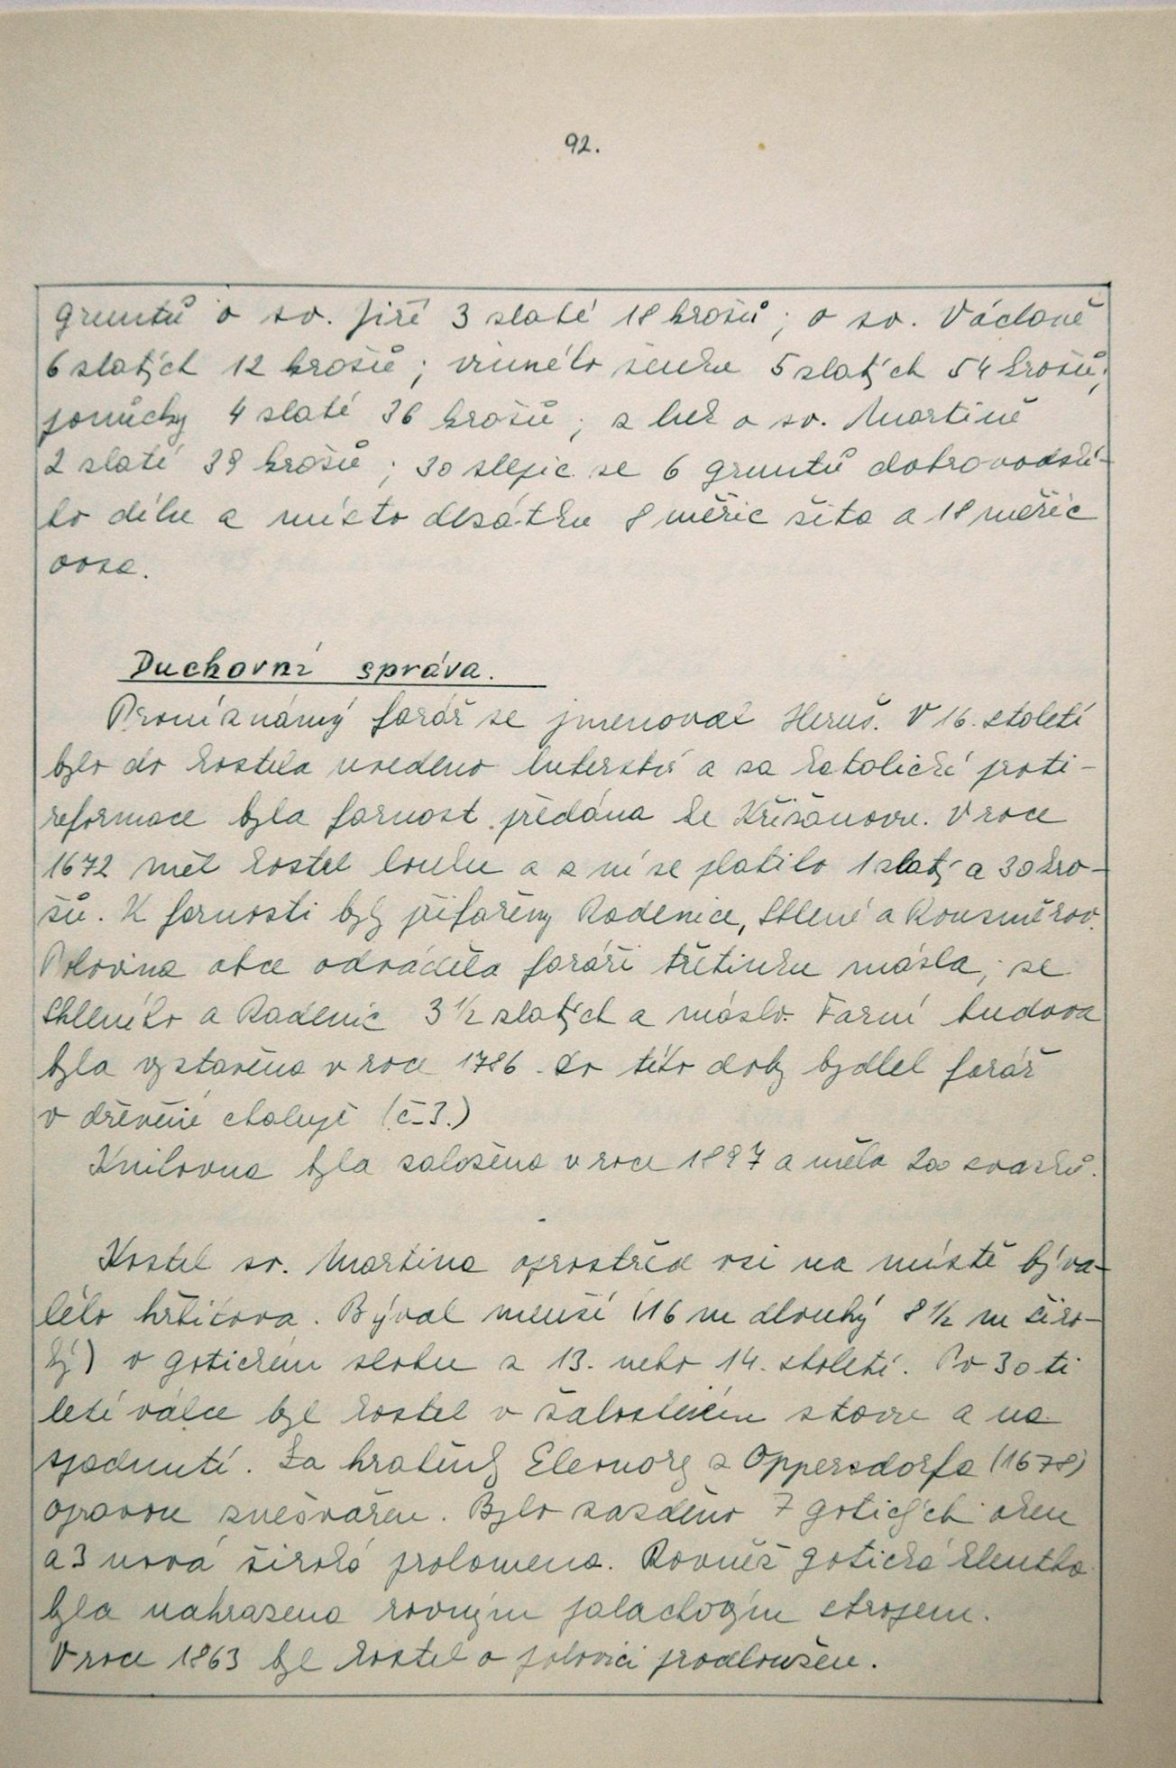 92.
gruntů o sv. Jiří 3 zlaté 18 grošů; o sv. Václavě
6 zlatých 12 grošů; vinného šenku 5 zlatých 54 grošů;
poručky 4 zlaté 36 grošů; z luk o sv. Martině
2 zlaté 39 grošů; 30 slepic se 6 gruntů dobrovodské-
ho dílu a místo desátku 8 měřic žita a 18 měřic
ovsa.
Duchovní správa.
První známý farář se jmenoval Heruš. V 16. století
bylo do kostela uvedeno luterství a za katolické proti-
reformace byla farnost předána ke Křižanovu. V roce
1672 měl kostel louku a z ní se platilo 1 zlatý a 30 gro-
šů. K farnosti byly přifařeny Radenice, Sklené a Kousměrov.
Polovina obce odváděla faráři třetinku másla, ze
Skleného a Radenic 3 1/2 zlatých a máslo. Farní budova
byla vystavěna v roce 1786. Do této doby bydlel farář
v dřevěné chalupě (č-3.)
Knihovna byla založena v roce 1897 a měla 200 svazků.
Kostel sv. Martina uprostřed vsi na místě býva-
lého hřbitova. Býval menší (16 m dlouhý 8 1/2 m širo-
ký) v gotickém slohu z 13. nebo 14. století. Po 30 ti
leté válce byl kostel v žalostném stavu a na
spadnutí. Za hraběnky Eleonory z Oppersdorfa (1678)
opravou znešvařen. Bylo zazděno 7 gotických oken
a 3 nová široká prolomena. Rovněž gotická klenba
byla nahrazena rovným palachovým stropem.
V roce 1863 byl kostel o polovici prodloužen.